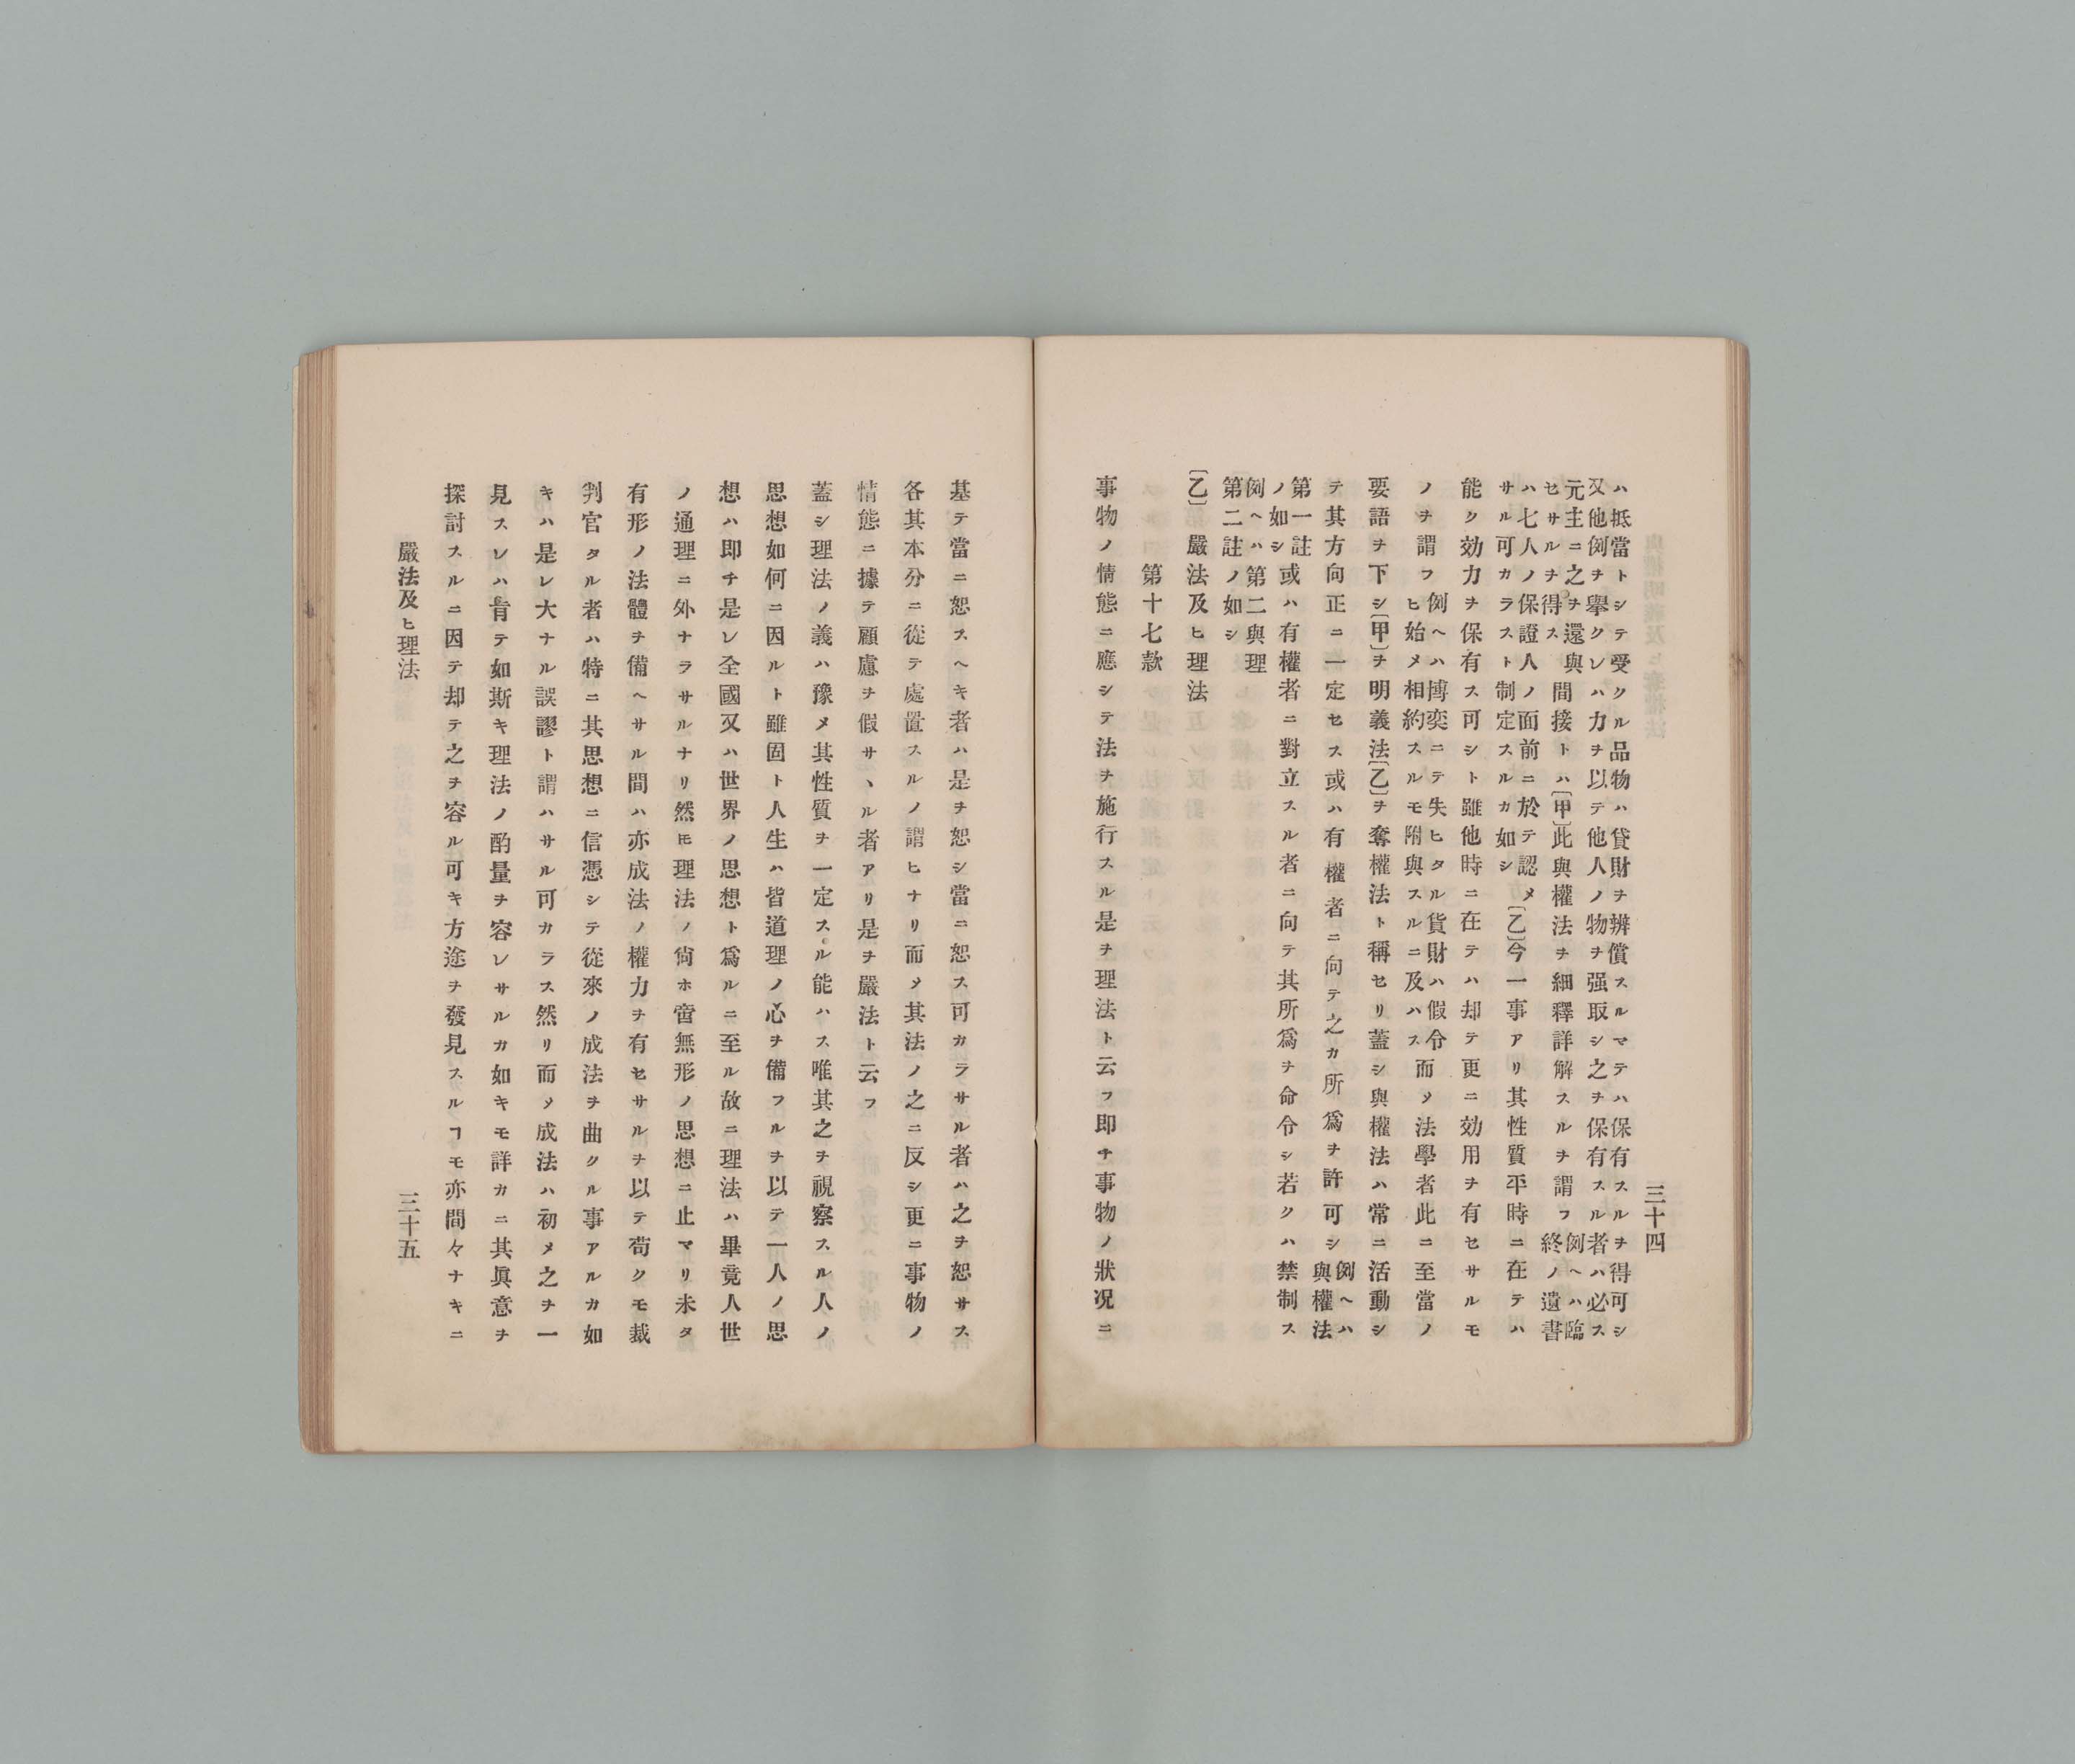 三十四
ハ抵當トシテ受クル品物ハ貸財ヲ辨償スルマテハ保有スルヲ得可シ
又他例ヲ擧クレハ力ヲ以テ他人ノ物ヲ强取シ之ヲ保有スル者ハ必ス
元主ニ之ヲ還與
セサルヲ得ス
間接トハ〔甲〕此與權法ヲ細釋詳解スルヲ謂フ
例ヘハ臨
終ノ遺書
ハ七人ノ保證人ノ面前ニ於テ認メ
サル可カラスト制定スルカ如シ
〔乙〕今一事アリ其性質平時ニ在テハ
能ク効力ヲ保有ス可シト雖他時ニ在テハ却テ更ニ効用ヲ有セサルモ
ノヲ謂フ
例ヘハ博奕ニテ失ヒタル貨財ハ假令
ヒ始メ相約スルモ附與スルニ及ハス
而メ法學者此ニ至當ノ
要語ヲ下シ〔甲〕ヲ明義法〔乙〕ヲ奪權法ト稱セリ蓋シ與權法ハ常ニ活動シ
テ其方向正ニ一定セス或ハ有權者ニ向テ之カ所爲ヲ許可シ
例ヘハ
與權法
第一註
ノ如シ
或ハ有權者ニ對立スル者ニ向テ其所爲ヲ命令シ若クハ禁制ス
例ヘハ第二與理
第二註ノ如シ
〔乙〕嚴法及ヒ理法
第十七款
事物ノ情態ニ應シテ法ヲ施行スル是ヲ理法ト云フ即チ事物ノ狀况ニ
基テ當ニ恕スヘキ者ハ是ヲ恕シ當ニ恕ス可カラサル者ハ之ヲ恕サス
各其本分ニ從テ處置スルノ謂ヒナリ而メ其法ノ之ニ反シ更ニ事物ノ
情態ニ據テ顧慮ヲ假サヽル者アリ是ヲ嚴法ト云フ
蓋シ理法ノ義ハ豫メ其性質ヲ一定スル能ハス唯其之ヲ視察スル人ノ
思想如何ニ因ルト雖固ト人生ハ皆道理ノ心ヲ備フルヲ以テ一人ノ思
想ハ即チ是レ全國又ハ世界ノ思想ト爲ルニ至ル故ニ理法ハ畢竟人世
ノ通理ニ外ナラサルナリ然モ理法ノ尙ホ啻無形ノ思想ニ止マリ未タ
有形ノ法體ヲ備ヘサル間ハ亦成法ノ權力ヲ有セサルヲ以テ苟クモ裁
判官タル者ハ特ニ其思想ニ信憑シテ從來ノ成法ヲ曲クル事アルカ如
キハ是レ大ナル誤謬ト謂ハサル可カラス然リ而メ成法ハ初メ之ヲ一
見スレハ肯テ如斯キ理法ノ酌量ヲ容レサルカ如キモ詳カニ其眞意ヲ
探討スルニ因テ却テ之ヲ容ル可キ方途ヲ發見スルヿモ亦間々ナキニ
嚴法及ヒ理法
三十五